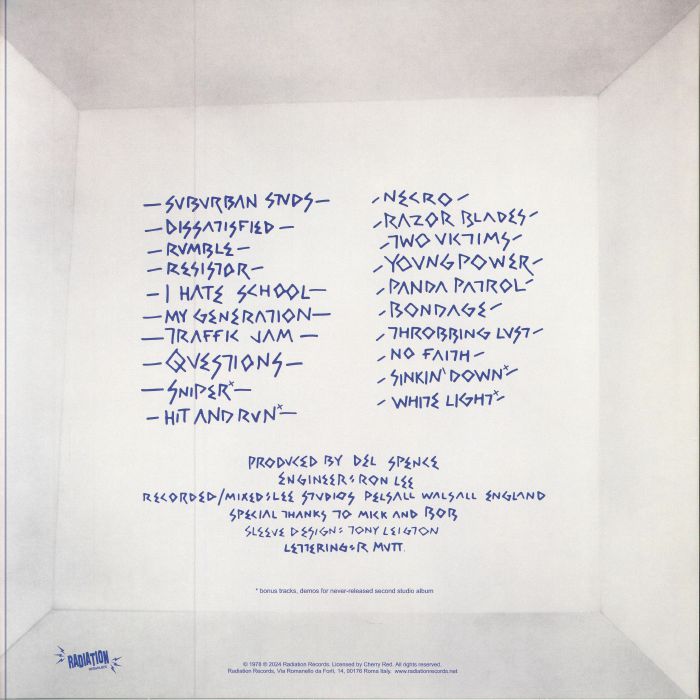 — SUBURBAN STUDS —
— DISSATISFIED —
— RUMBLE —
— RESISTOR —
— I HATE SCHOOL —
— MY GENERATION —
— TRAFFIC JAM —
— QUESTIONS —
— SNIPER* —
— HIT AND RUN* —
- NECRO -
- RAZOR BLADES -
- TWO VICTIMS -
- YOUNG POWER -
- PANDA PATROL -
- BONDAGE -
- THROBBING LUST -
- NO FAITH -
- SINKIN' DOWN* -
- WHITE LIGHT* -
PRODUCED BY DEL SPENCE
ENGINEER: RON LEE
RECORDED/MIXED: LEE STUDIOS PELSALL WALSALL ENGLAND
SPECIAL THANKS TO MICK AND BOB
SLEEVE DESIGN: TONY LEIGTON
LETTERING: R MUTT.
* bonus tracks, demos for never-released second studio album
RADIATION
© 1978 ℗ 2024 Radiation Records. Licensed by Cherry Red. All rights reserved.
Radiation Records, Via Romanello da Forlì, 14, 00176 Roma Italy. www.radiationrecords.net